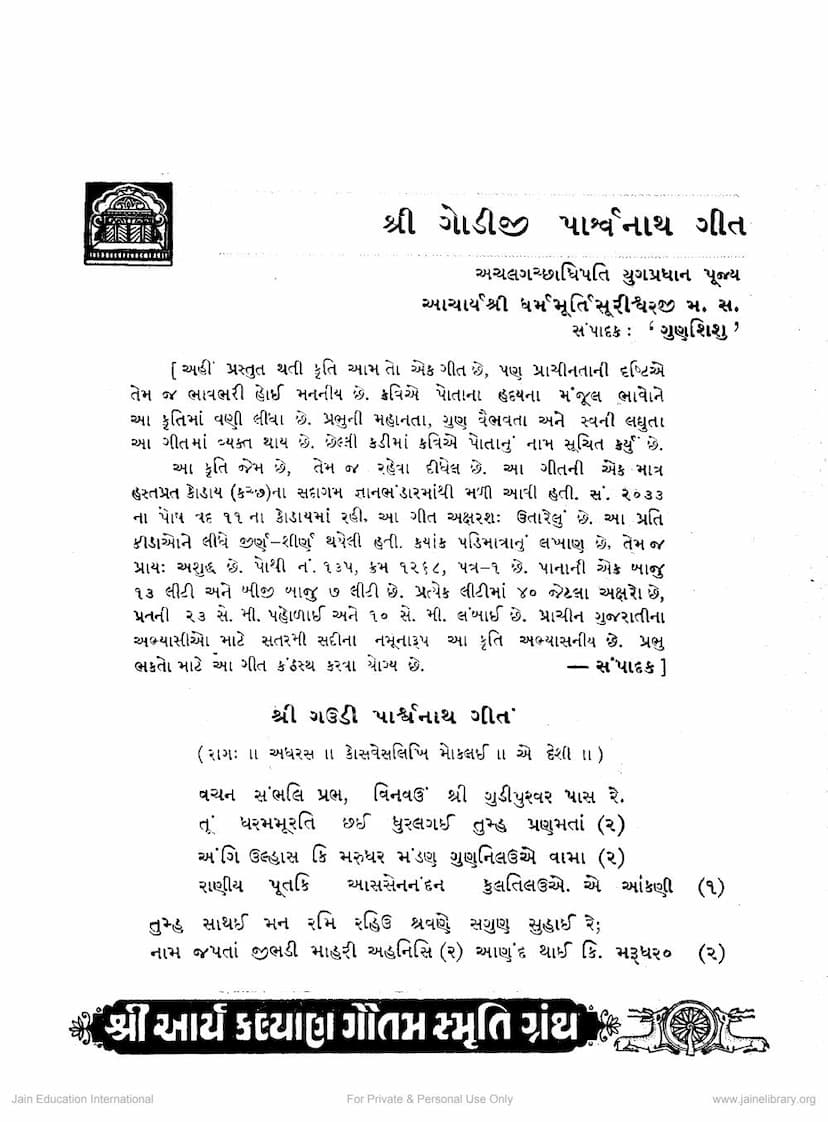 શ્રી ગોડીજી પાર્શ્વનાથ ગીત
અચલગચ્છાધિપતિ યુગપ્રધાન પૂજ્ય
આચાર્યશ્રી ધર્મમૂર્તિસૂરીશ્વરજી મ. સ.
સંપાદક : ‘ગુણશિશુ’
[ અહીં પ્રસ્તુત થતી કૃતિ આમ તો એક ગીત છે, પણ પ્રાચીનતાની દૃષ્ટિએ
તેમ જ ભાવભરી હોઈ મનનીય છે. કવિએ પોતાના હૃદયના મંજૂલ ભાવોને
આ કૃતિમાં વણી લીધા છે. પ્રભુની મહાનતા, ગુણ વૈભવતા અને સ્વની લઘુતા
આ ગીતમાં વ્યક્ત થાય છે. છેલ્લી કડીમાં કવિએ પોતાનું નામ સૂચિત કર્યું છે.
આ કૃતિ જેમ છે, તેમ જ રહેવા દીધેલ છે. આ ગીતની એક માત્ર
હસ્તપ્રત કોડાય (કચ્છ)ના સદાગમ જ્ઞાનભંડારમાંથી મળી આવી હતી. સં. ૨૦૩૩
ના પોષ વદ ૧૧ ના કોડાયમાં રહી, આ ગીત અક્ષરશઃ ઉતારેલું છે. આ પ્રતિ
કીડાઓને લીધે જીર્ણ–શીર્ણ થયેલી હતી. કયાંક પડિમાત્રાનું લખાણ છે, તેમ જ
પ્રાયઃ અશુદ્ધ છે. પોથી નં. ૧૩૫, ક્રમ ૧૨૬૮, પત્ર–૧ છે. પાનાની એક બાજુ
૧૩ લીટી અને બીજી બાજુ ૭ લીટી છે. પ્રત્યેક લીટીમાં ૪૦ જેટલા અક્ષરો છે,
પ્રતની ૨૩ સે. મી. પહોળાઈ અને ૧૦ સે. મી. લંબાઈ છે. પ્રાચીન ગુજરાતીના
અભ્યાસીઓ માટે સતરમી સદીના નમૂનારૂપ આ કૃતિ અભ્યાસનીય છે. પ્રભુ
ભકતો માટે આ ગીત કંઠસ્થ કરવા યોગ્ય છે. — સંપાદક ]
શ્રી ગઉડી પાર્શ્વનાથ ગીતં
( રાગઃ ॥ અધરસ ॥ કોસવેસલિખિ મોકલઈ ॥ એ દેશી ॥ )
વચન સંભલિ પ્રભ, વિનવઉં શ્રી ગુડીપુરવર પાસ રે.
તૂં ધરમમૂરતિ છઈ ધુરલગઈ તુમ્હ પ્રણમતાં (૨)
અંગિ ઉલ્હાસ કિ મરુધર મંડણ ગુણનિલઉએ વામા (૨)
રાણીય પૂતકિ આસસેનનંદન કુલતિલઉએ. એ આંકણી (૧)
તુમ્હ સાથઈ મન રમિ રહિઉ શ્રવણે સગુણ સુહાઈ રે;
નામ જપતાં જીભડી માહરી અહનિસિ (૨) આણંદ થાઈ કિ. મરૂધર૦ (૨)
શ્રી આર્ય કલ્યાણ ગૌતમ સ્મૃતિ ગ્રંથ
Jain Education International For Private & Personal Use Only www.jainelibrary.org